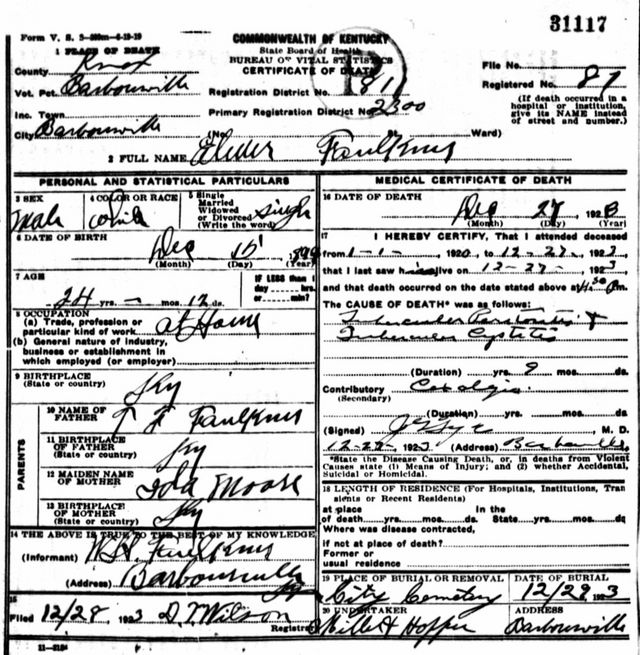 31117
Form V. S. 5-
COMMONWEALTH OF KENTUCKY
State Board of Health
BUREAU OF VITAL STATISTICS
CERTIFICATE OF DEATH
1 PLACE OF DEATH
County Knox
File No.
Vot. Pct. Barbourville
Registration District No.
Registered No. 87
Inc. Town
Primary Registration District No. 2300
(If death occurred in a hospital or institution, give its NAME instead of street and number.)
City Barbourville (No. Ward)
2 FULL NAME Elmer Faulkner
PERSONAL AND STATISTICAL PARTICULARS
3 SEX
Male
4 COLOR OR RACE
White
5 Single
Married
Widowed
or Divorced
(Write the word)
Single
6 DATE OF BIRTH
Dec 15, 1899
(Month) (Day) (Year)
7 AGE
24 yrs. - mos. 12 ds.
IF LESS than 1
day --- hrs.
or --- min?
8 OCCUPATION
(a) Trade, profession or
particular kind of work at Home
(b) General nature of industry,
business or establishment in
which employed (or employer)
9 BIRTHPLACE
(State or country) Ky
PARENTS
10 NAME OF
FATHER T F Faulkner
11 BIRTHPLACE
OF FATHER
(State or country) Ky
12 MAIDEN NAME
OF MOTHER Ida Moore
13 BIRTHPLACE
OF MOTHER
(State or country) Ky
14 THE ABOVE IS TRUE TO THE BEST OF MY KNOWLEDGE
(Informant) Faulkner
(Address) Barbourville Ky
15
Filed 12/28 1923 D. T. Wilson
Registrar
11-3184
MEDICAL CERTIFICATE OF DEATH
16 DATE OF DEATH
Dec 27, 1923
(Month) (Day) (Year)
17 I HEREBY CERTIFY, That I attended deceased
from 1-1- 1920, to 12-27-, 1923,
that I last saw h alive on 12-27-, 1923
and that death occurred on the date stated above at m.
The CAUSE OF DEATH* was as follows:
Tubercular Peritonitis &
Tubercular Cystitis
(Duration) yrs. mos. ds.
Contributory Coxalgia.
(Secondary)
(Duration) yrs. mos. ds.
(Signed) M. D.
1923 (Address) Barbourville
*State the Disease Causing Death, or, in deaths from Violent
Causes state (1) Means of Injury; and (2) whether Accidental,
Suicidal or Homicidal.
18 LENGTH OF RESIDENCE (For Hospitals, Institutions, Tran
sients or Recent Residents)
at place In the
of death yrs. mos. ds. State yrs. mos. ds.
Where was disease contracted,
if not at place of death?
Former or
usual residence
19 PLACE OF BURIAL OR REMOVAL
City Cemetery
DATE OF BURIAL
12/29 1923
20 UNDERTAKER
Hopper
ADDRESS
Barbourville